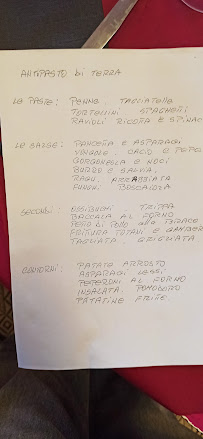 ANTIPASTO DI TERRA
LE PASTE: PENNE, TAGLIATELLE
TORTELLINI SPAGHETTI
RAVIOLI RICOTTA E SPINACI
LE SALSE: PANCETTA E ASPARAGI
VONGOLE, CACIO E PEPE
GORGONZOLA E NOCI
BURRO E SALVIA,
RAGU, ARRABBIATA
FUNGHI, BOSCAIOLA
SECONDI: TRIPPA
BACCALA AL FORNO
PETTO DI POLLO ALLA
FRITTURA TOTANI E GAMBERI
TAGLIATA, GRIGLIATA
CONTORNI: PATATE ARROSTO
ASPARAGI LESSI
PEPERONI AL FORNO
INSALATA, POMODORO
PATATINE FRITTE.